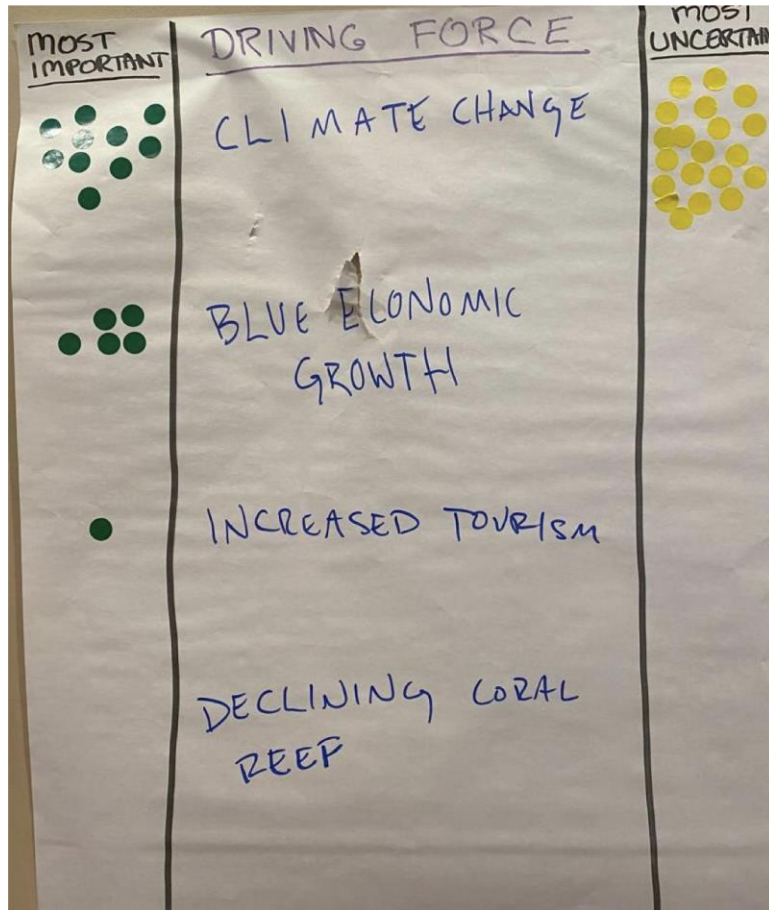 MOST
IMPORTANT
DRIVING FORCE
MOST
UNCERTAIN
CLIMATE CHANGE
BLUE ECONOMIC
GROWTH
INCREASED TOURISM
DECLINING CORAL
REEF